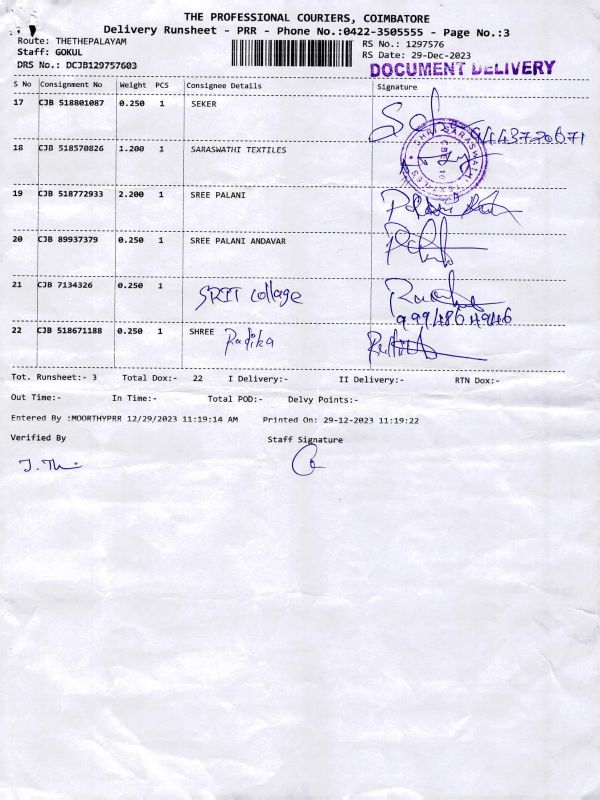 THE PROFESSIONAL COURIERS, COIMBATORE
Delivery Runsheet - PRR - Phone No.:0422-3505555 - Page No.:3
Route: THETHEPALAYAM
RS No.: 1297576
Staff: GOKUL
RS Date: 29-Dec-2023
DRS No.: DCJB129757603
DOCUMENT DELIVERY
S No Consignment No Weight PCS Consignee Details Signature
17 CJB 518801087 0.250 1 SEKER
9443720671
18 CJB 518570826 1.200 1 SARASWATHI TEXTILES
SHRI SARASWATHI
19 CJB 518772933 2.200 1 SREE PALANI
Palani
20 CJB 89937379 0.250 1 SREE PALANI ANDAVAR
21 CJB 7134326 0.250 1 SRIT collage
9994864946
22 CJB 518671188 0.250 1 SHREE Radika
Tot. Runsheet:- 3 Total Dox:- 22 I Delivery:- II Delivery:- RTN Dox:-
Out Time:- In Time:- Total POD:- Delvy Points:-
Entered By :MOORTHYPRR 12/29/2023 11:19:14 AM Printed On: 29-12-2023 11:19:22
Verified By Staff Signature